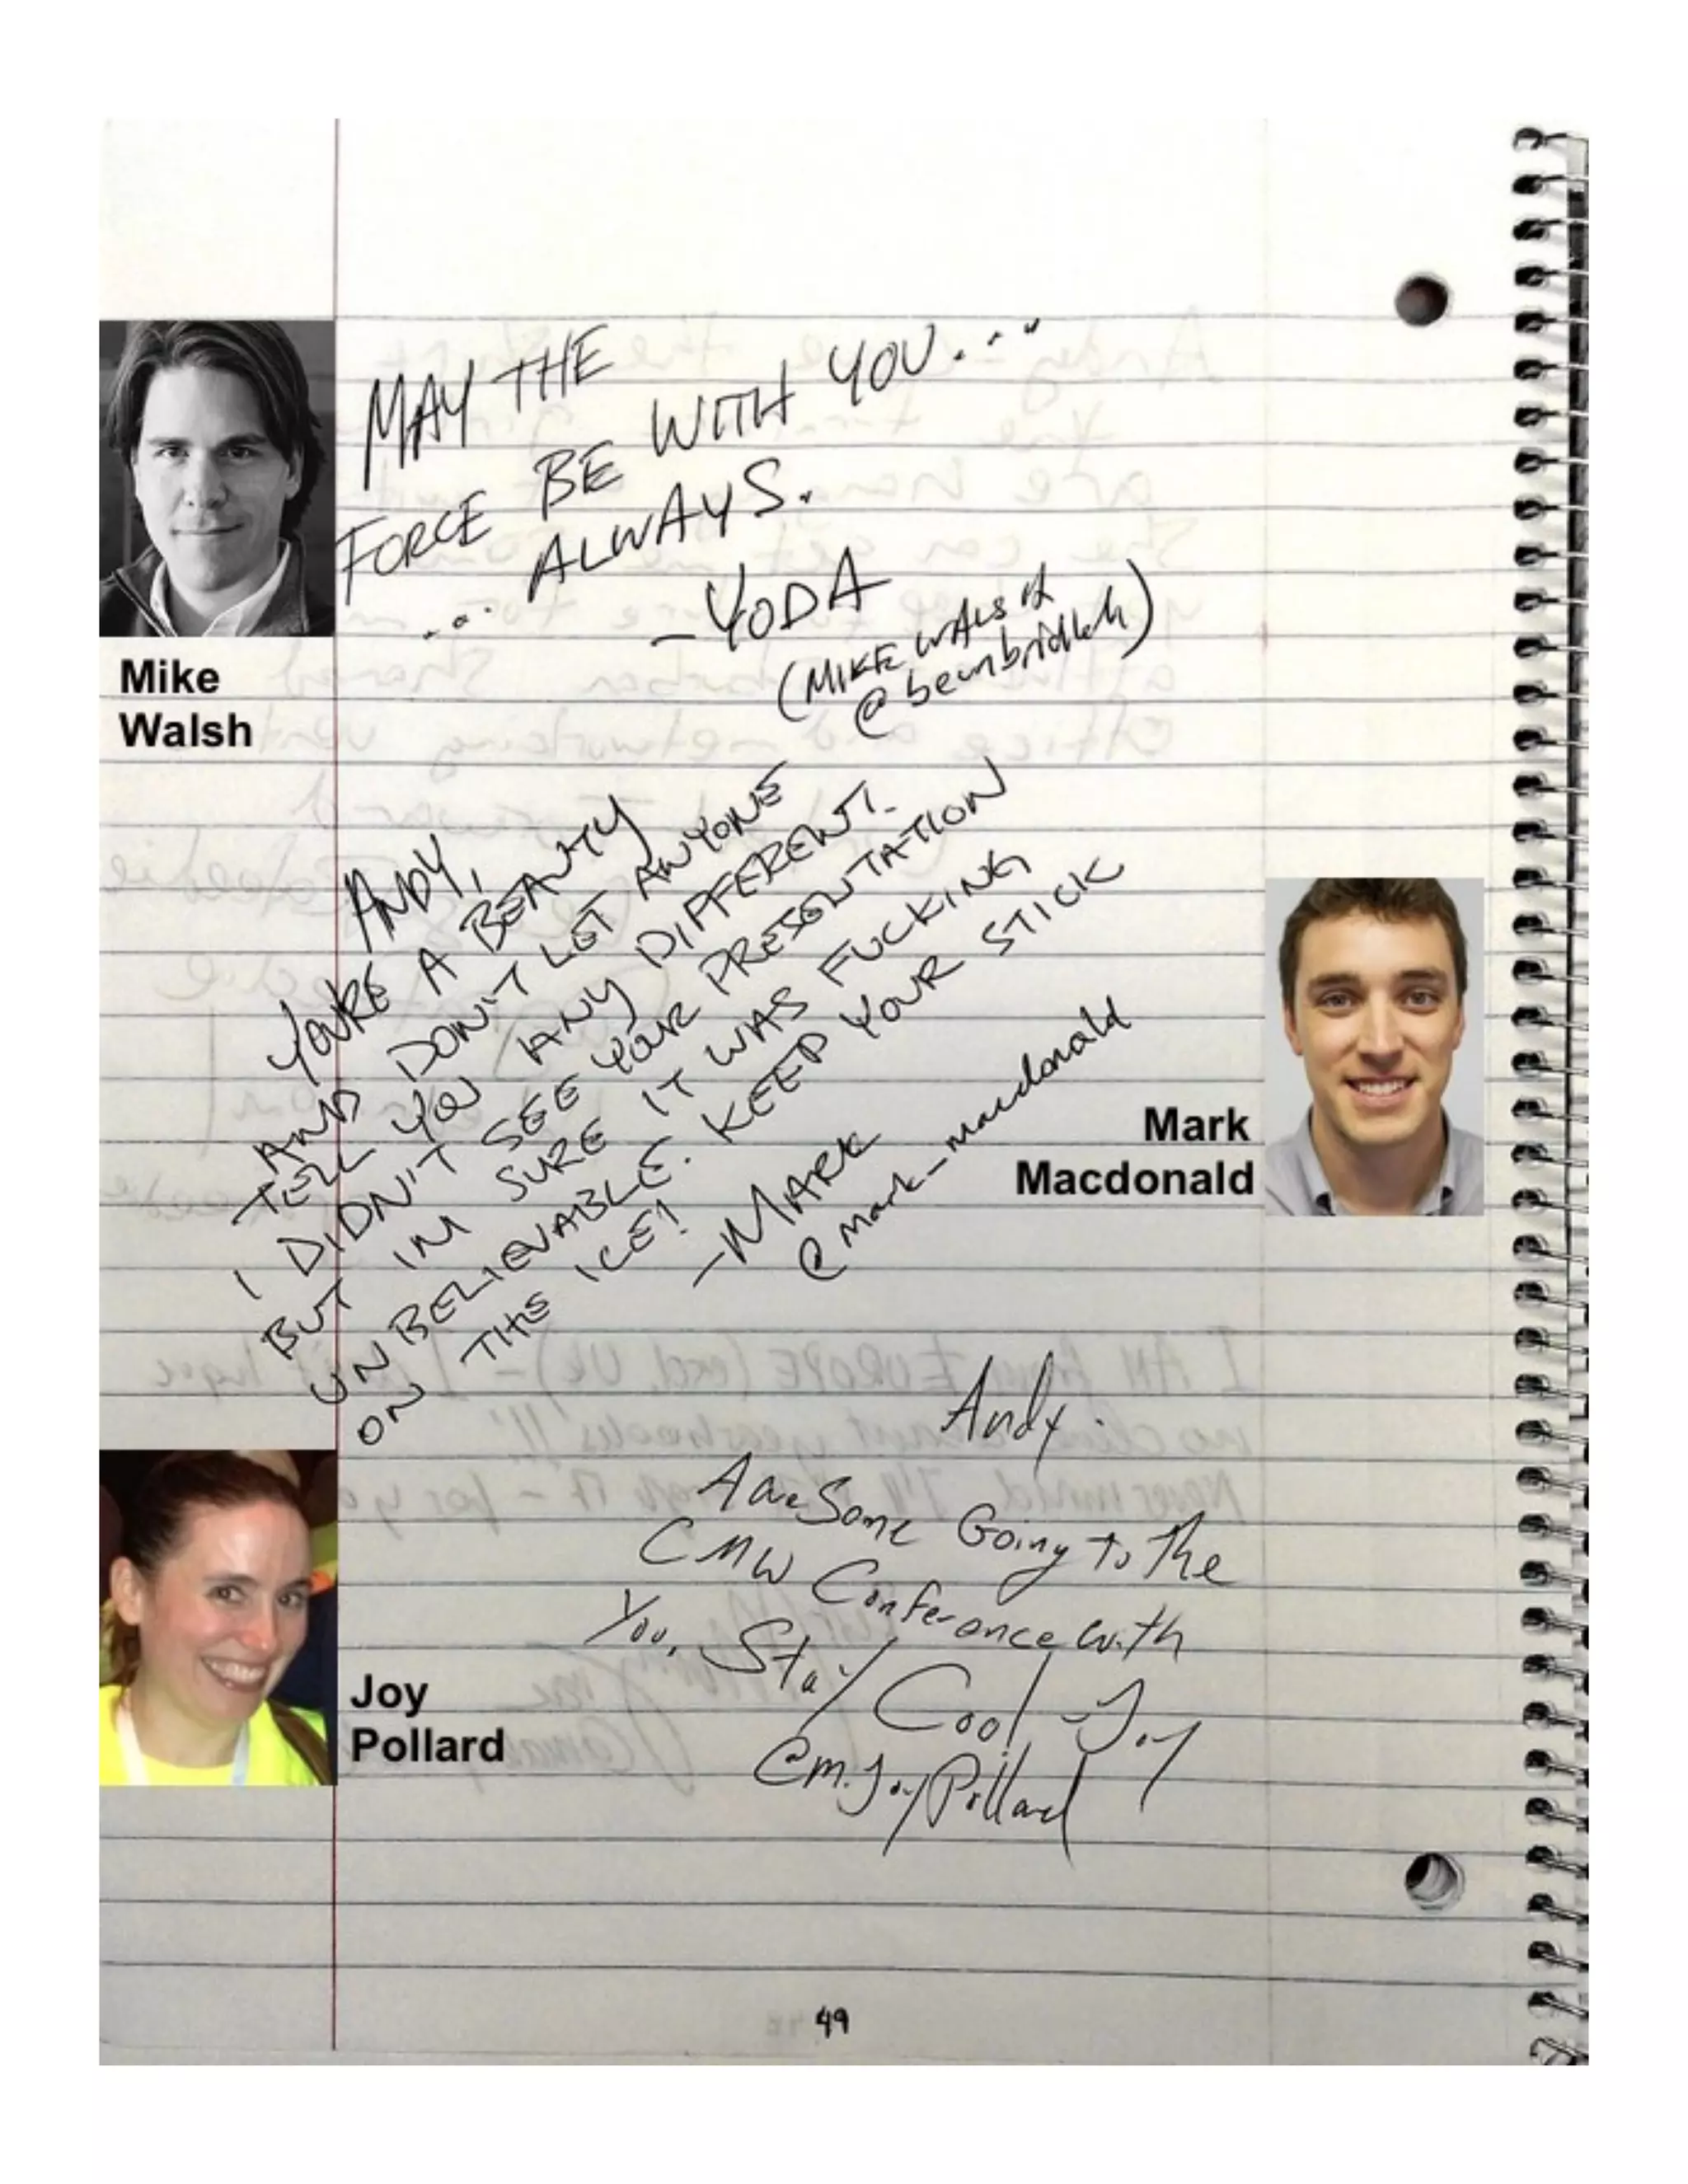 MAY THE
FORCE BE WITH YOU...
... ALWAYS.
-YODA
(MIKE WALSH
Mike
Walsh
ANDY,
YOU'RE A BEAUTY
AND DON'T LET ANYONE
TELL YOU ANY DIFFERENT.
I DIDN'T SEE YOUR PRESENTATION
BUT IM SURE IT WAS FUCKING
UNBELIEVABLE. KEEP YOUR STICK
ON THE ICE!
-MARK
@mark_macdonald
Mark
Macdonald
Andy.
Awesome Going to The
CMW Conference with
You, Stay Cool -Joy
@mJoyPollard
Joy
Pollard
49